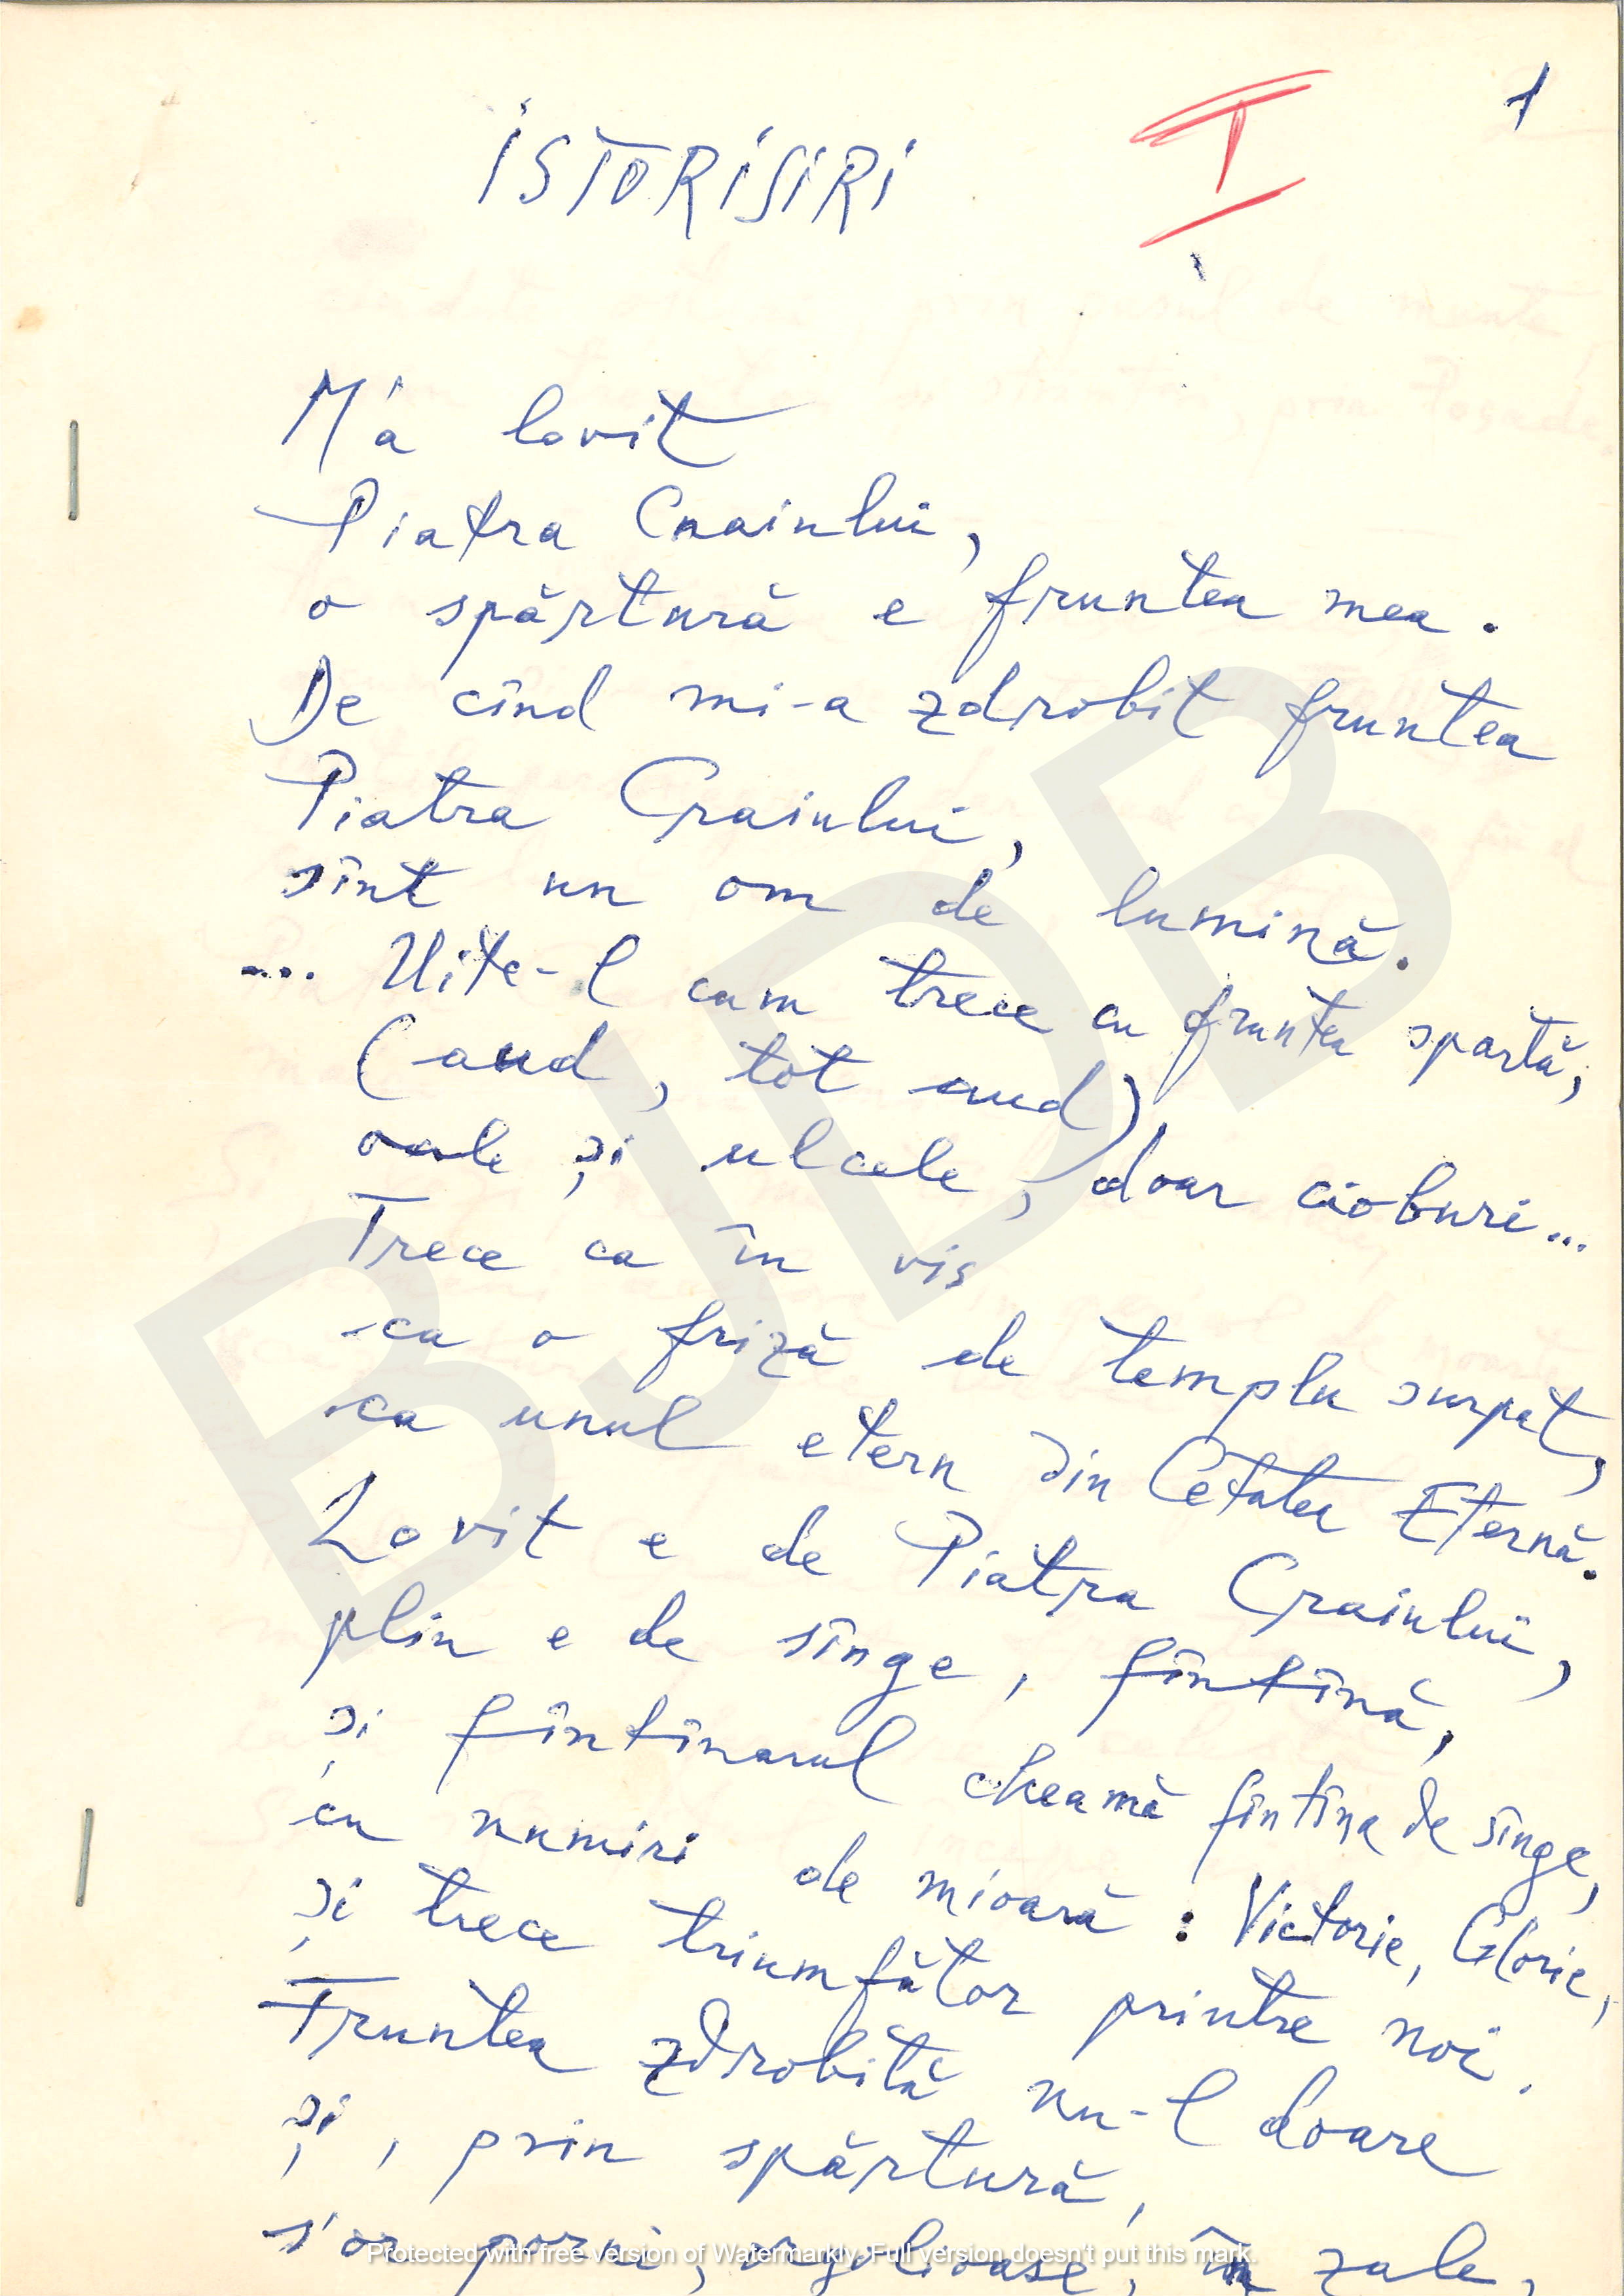 1
ISTORISIRI
I
M'a lovit
Piatra Craiului,
o spărtură e fruntea mea.
De cînd mi-a zdrobit fruntea
Piatra Craiului,
sînt un om de lumină.
... Uite-l cum trece cu fruntea spartă,
(aud, tot aud)
oale și ulcele, doar cioburi...
Trece ca în vis
ca o friză de templu surpat,
ca unul etern din Cetatea Eternă.
Lovit e de Piatra Craiului,
plin e de sînge, fîntînă,
și fîntînarul cheamă fîntîna de sînge,
cu numiri de mioară : Victorie, Glorie,
și trece triumfător printre noi.
Fruntea zdrobită nu-l doare
și, prin spărtură,
s'or porni, orgolioase, în zale,
BJDB
Protected with free version of Watermarkly. Full version doesn't put this mark.